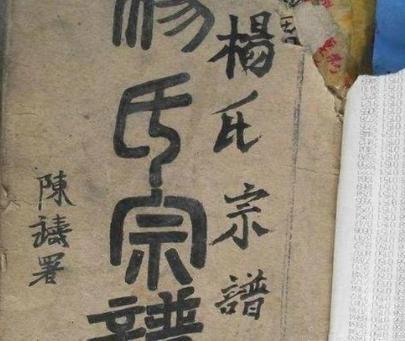 楊氏宗譜
楊氏宗譜
陳譸署